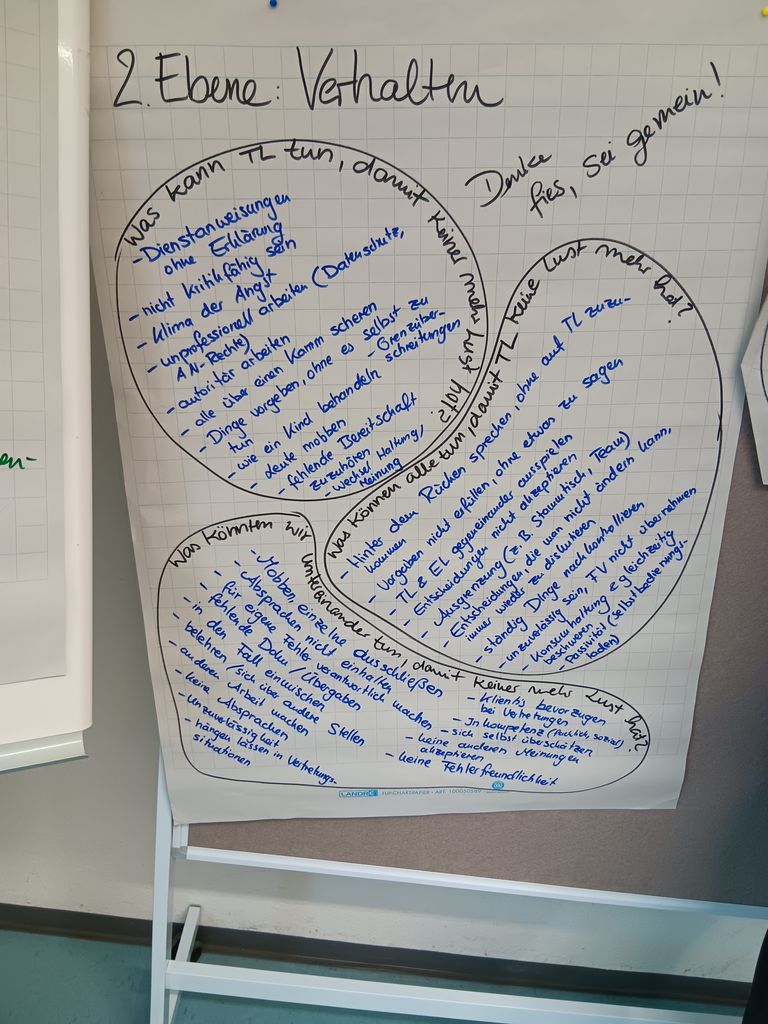 2. Ebene: Verhalten
Denke
fies, sei gemein!
Was kann TL tun, damit keiner mehr Lust hat?
- Dienstanweisungen
ohne Erklärung
- nicht kritikfähig sein
- Klima der Angst
- unprofessionell arbeiten (Datenschutz,
AN-Rechte)
- autoritär arbeiten
- alle über einen Kamm scheren
- Dinge vorgeben, ohne es selbst zu
tun
- Grenzüber-
schreitungen
- wie ein Kind behandeln
- Leute mobben
- fehlende Bereitschaft
zuzuhören
- wechsel Haltung,
Meinung
Was können alle tun, damit TL keine Lust mehr hat?
- Hinter dem Rücken sprechen, ohne auf TL zuzu-
kommen
- Vorgaben nicht erfüllen, ohne etwas zu sagen
- TL & EL gegeneinander ausspielen
- Entscheidungen nicht akzeptieren
- Ausgrenzung (z.B. Stammtisch, Team)
- Entscheidungen die man nicht ändern kann,
immer wieder zu diskutieren
- ständig Dinge nachkontrollieren
- unzuverlässig sein, FV nicht übernehmen
- Konsumhaltung & gleichzeitig
beschweren
- Passivität (Selbstbedienungs-
laden)
Was könnten wir untereinander tun, damit keiner mehr Lust hat?
- Mobben, einzelne ausschließen
- Absprachen nicht einhalten
- für eigene Fehler verantwortlich machen
- fehlende Doku/Übergaben
- in den Fall einmischen
- belehren/sich über andere stellen
- anderen Arbeit machen
- keine Absprachen
- Unzuverlässigkeit
- hängen lassen in Vertretungs-
situationen
- Klient*s bevorzugen
bei Vertretungen
- Inkompetenz (fachlich, sozial)
- sich selbst überschätzen
- keine anderen Meinungen
akzeptieren
- keine Fehlerfreundlichkeit
LANDRÉ FLIPCHARTPAPIER • ART. 100050589
en-